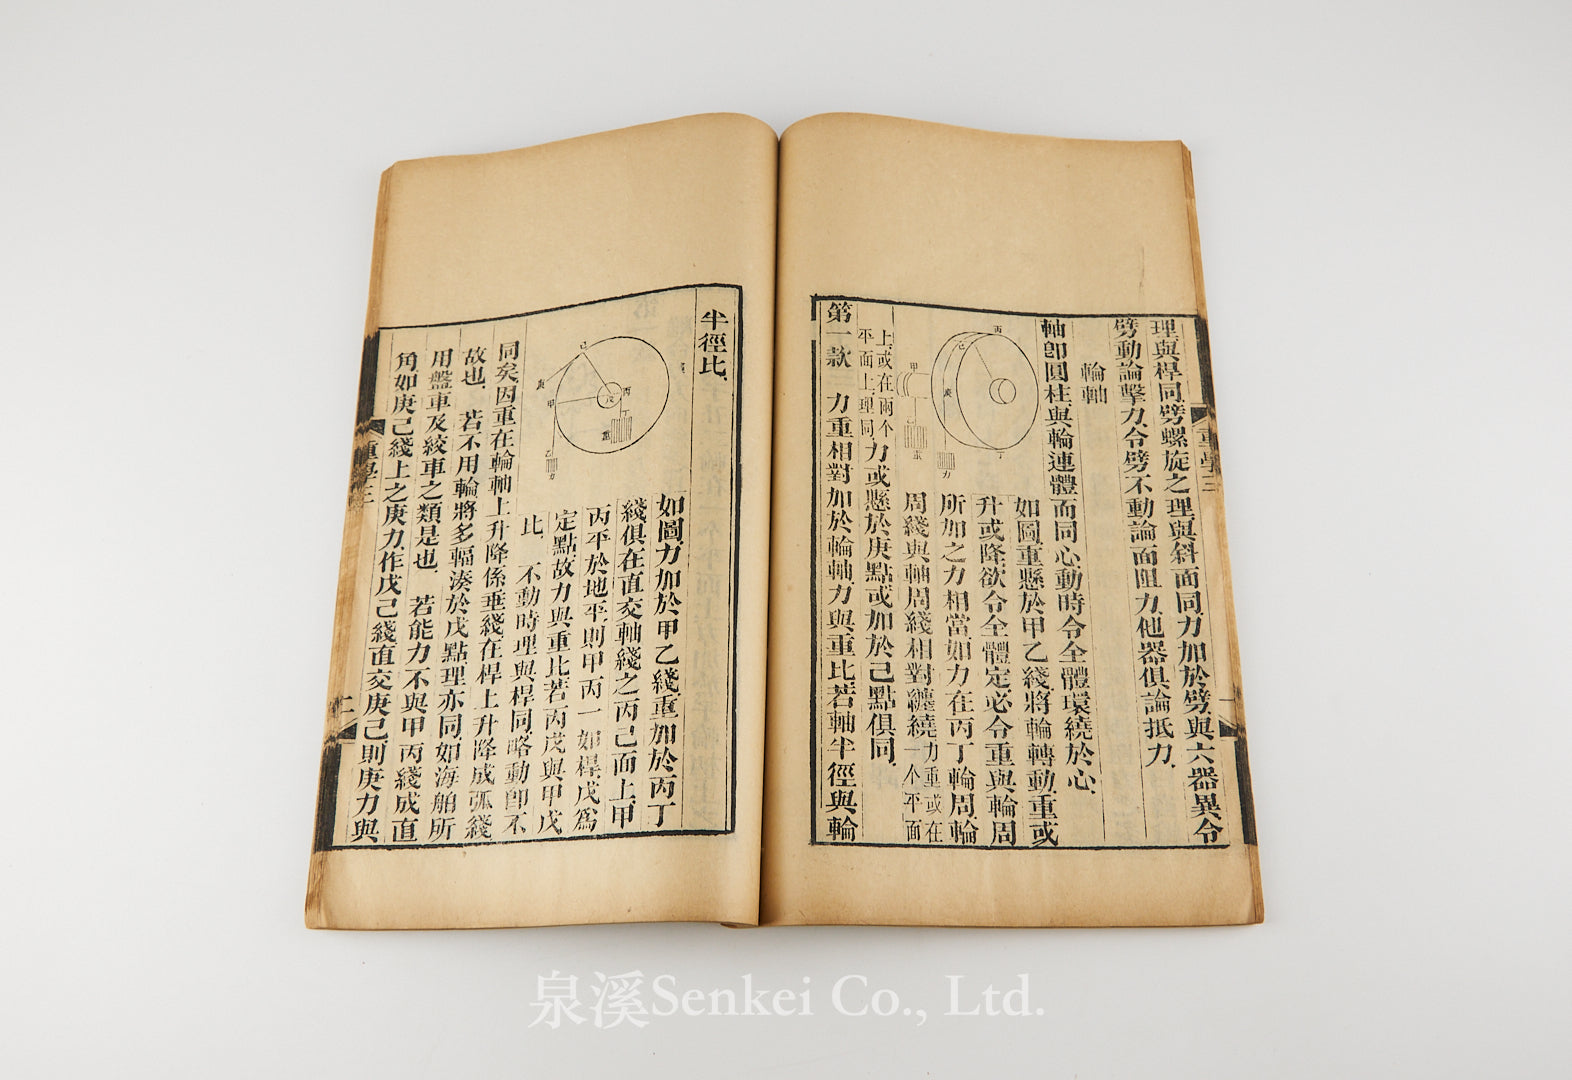 理與桿同劈螺旋之理與斜面同力加於劈與六器異令
劈動論擊力令劈不動論面阻力他器俱論抵力
輪軸
軸卽圓柱與輪連體而同心動時令全體環繞於心
如圖重懸於甲乙綫將輪轉動重或
升或降欲令全體定必令重與輪周
所加之力相當如力在丙丁輪周輪
周綫與軸周綫相對纏繞力重或在一个平面
上或在兩个平面上理同力或懸於庚點或加於己點俱同
第一款 力重相對加於輪軸力與重比若軸半徑與輪
丙
己
甲
庚
乙
重
力
丁
重學三
一
半徑比
如圖力加於甲乙綫重加於丙丁
綫俱在直交軸綫之丙己面上甲
丙平於地平則甲丙一如桿戊爲
定點故力與重比若丙戊與甲戊
比 不動時理與桿同略動卽不
同矣因重在輪軸上升降係垂綫在桿上升降成弧綫
故也 若不用輪將多輻湊於戊點理亦同如海舶所
用盤車及絞車之類是也 若能力不與甲丙綫成直
角如庚己綫上之庚力作戊己綫直交庚己則庚力與
己
庚
甲
丙
戊
丁
重
乙
力
重學三
二
泉溪Senkei Co., Ltd.